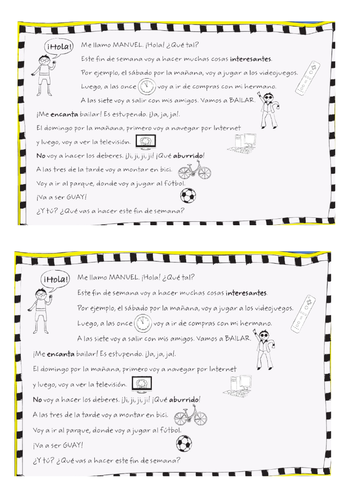 ¡Hola!
Me llamo MANUEL. ¡Hola! ¿Qué tal?
Este fin de semana voy a hacer muchas cosas interesantes.
Por ejemplo, el sábado por la mañana, voy a jugar a los videojuegos.
Luego, a las once voy a ir de compras con mi hermano.
A las siete voy a salir con mis amigos. Vamos a BAILAR.
¡Me encanta bailar! Es estupendo. ¡Ja, ja, ja!.
El domingo por la mañana, primero voy a navegar por Internet
y luego, voy a ver la televisión.
No voy a hacer los deberes. ¡Ji, ji, ji, ji! ¡Qué aburrido!
A las tres de la tarde voy a montar en bici.
Voy a ir al parque, donde voy a jugar al fútbol.
¡Va a ser GUAY!
¿Y tú? ¿Qué vas a hacer este fin de semana?
¡Hola!
Me llamo MANUEL. ¡Hola! ¿Qué tal?
Este fin de semana voy a hacer muchas cosas interesantes.
Por ejemplo, el sábado por la mañana, voy a jugar a los videojuegos.
Luego, a las once voy a ir de compras con mi hermano.
A las siete voy a salir con mis amigos. Vamos a BAILAR.
¡Me encanta bailar! Es estupendo. ¡Ja, ja, ja!.
El domingo por la mañana, primero voy a navegar por Internet
y luego, voy a ver la televisión.
No voy a hacer los deberes. ¡Ji, ji, ji, ji! ¡Qué aburrido!
A las tres de la tarde voy a montar en bici.
Voy a ir al parque, donde voy a jugar al fútbol.
¡Va a ser GUAY!
¿Y tú? ¿Qué vas a hacer este fin de semana?